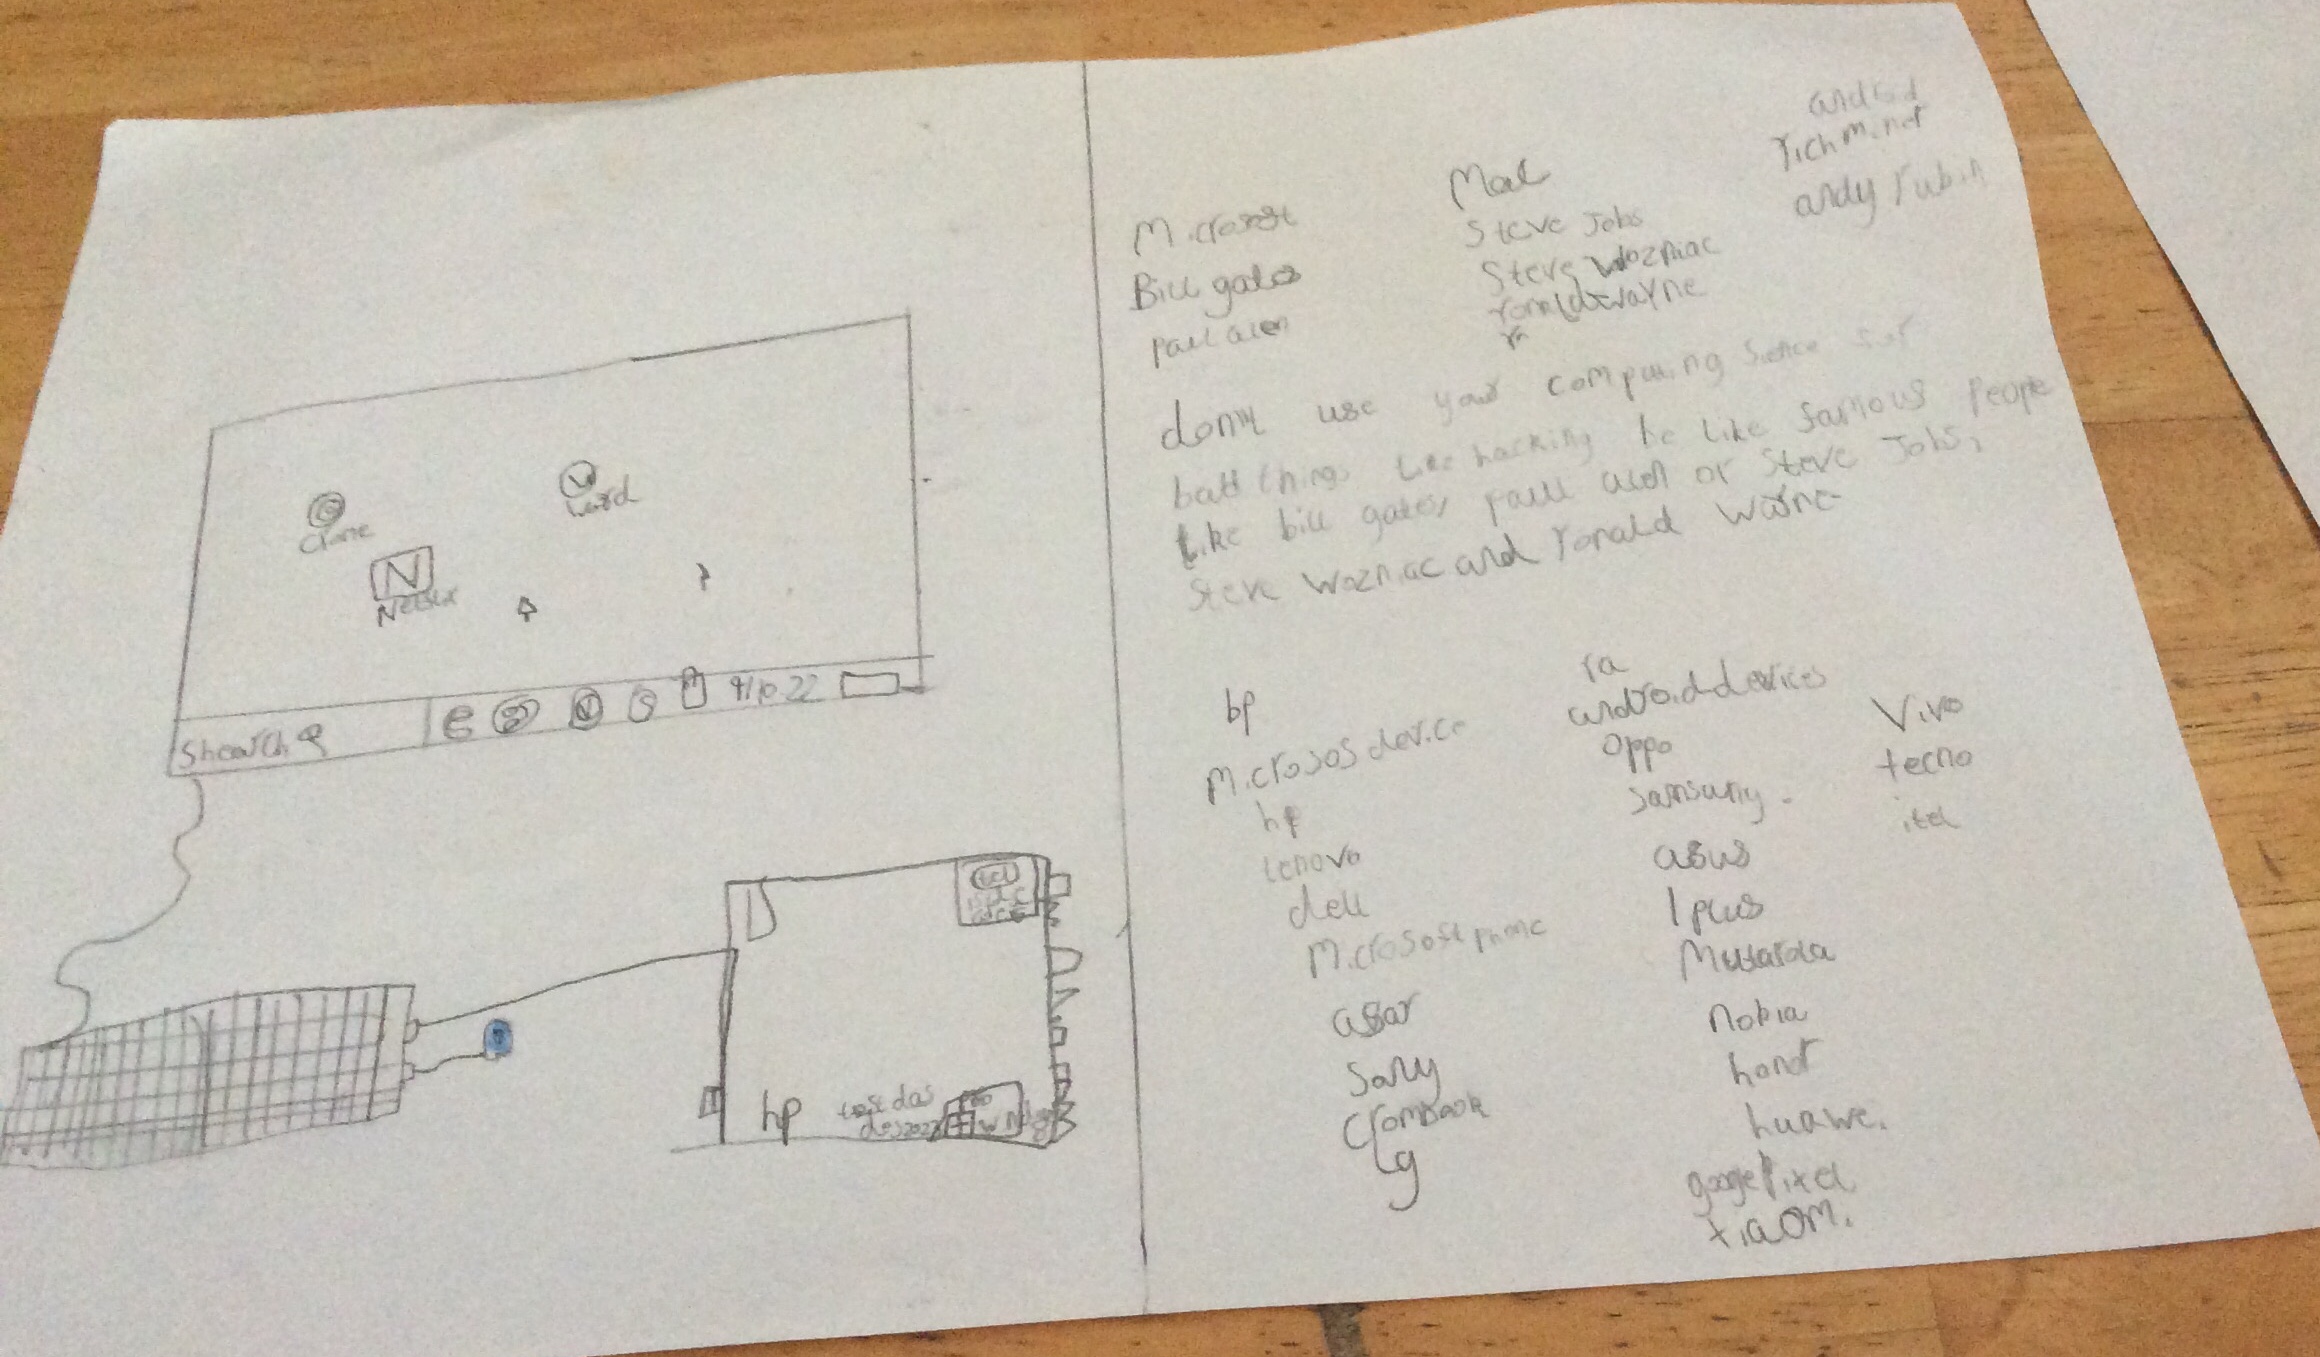 Crome
word
N
Netflix
Shearch
e
9/10.22
intel
hp
windows
Microsoft
Bill gates
paul alen
Mac
Steve Jobs
Steve Wozniac
ronald wayne
r
richminer
andy rubin
donnt use your computing for
batt things like hacking be like famous people
like bill gates paul alen or Steve Jobs,
Steve Wozniac and ronald Warne
bp
Microsos device
hp
lenovo
dell
Microsoft phone
asar
Sony
Crombook
Lg
ra
android devices
Oppo
Samsung.
asus
1 plus
Mutarola
nokia
honor
huawei
google Pixel
xiaomi
Vivo
tecno
itel